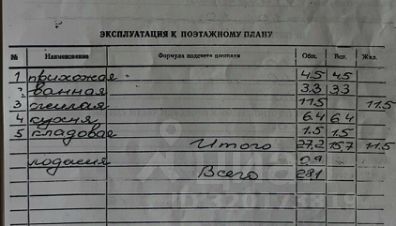 ЭКСПЛУАТАЦИЯ К ПОЭТАЖНОМУ ПЛАНУ
№ Наименование Формула подсчета площади Общ. Всп. Жил.
1 прихожая 4.5 4.5
2 ванная 3.3 3.3
3 жилая 11.5 11.5
4 кухня 6.4 6.4
5 кладовая 1.5 1.5
Итого 27,2 15,7 11.5
лоджия 0,9
Всего 28,1
циан
ID 320173319